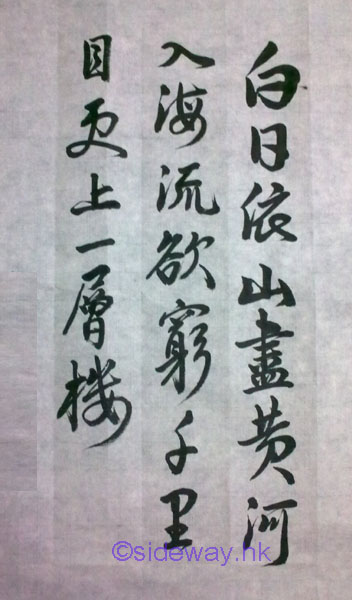 白日依山盡黄河
入海流欲窮千里
目更上一層楼
©sideway.hk